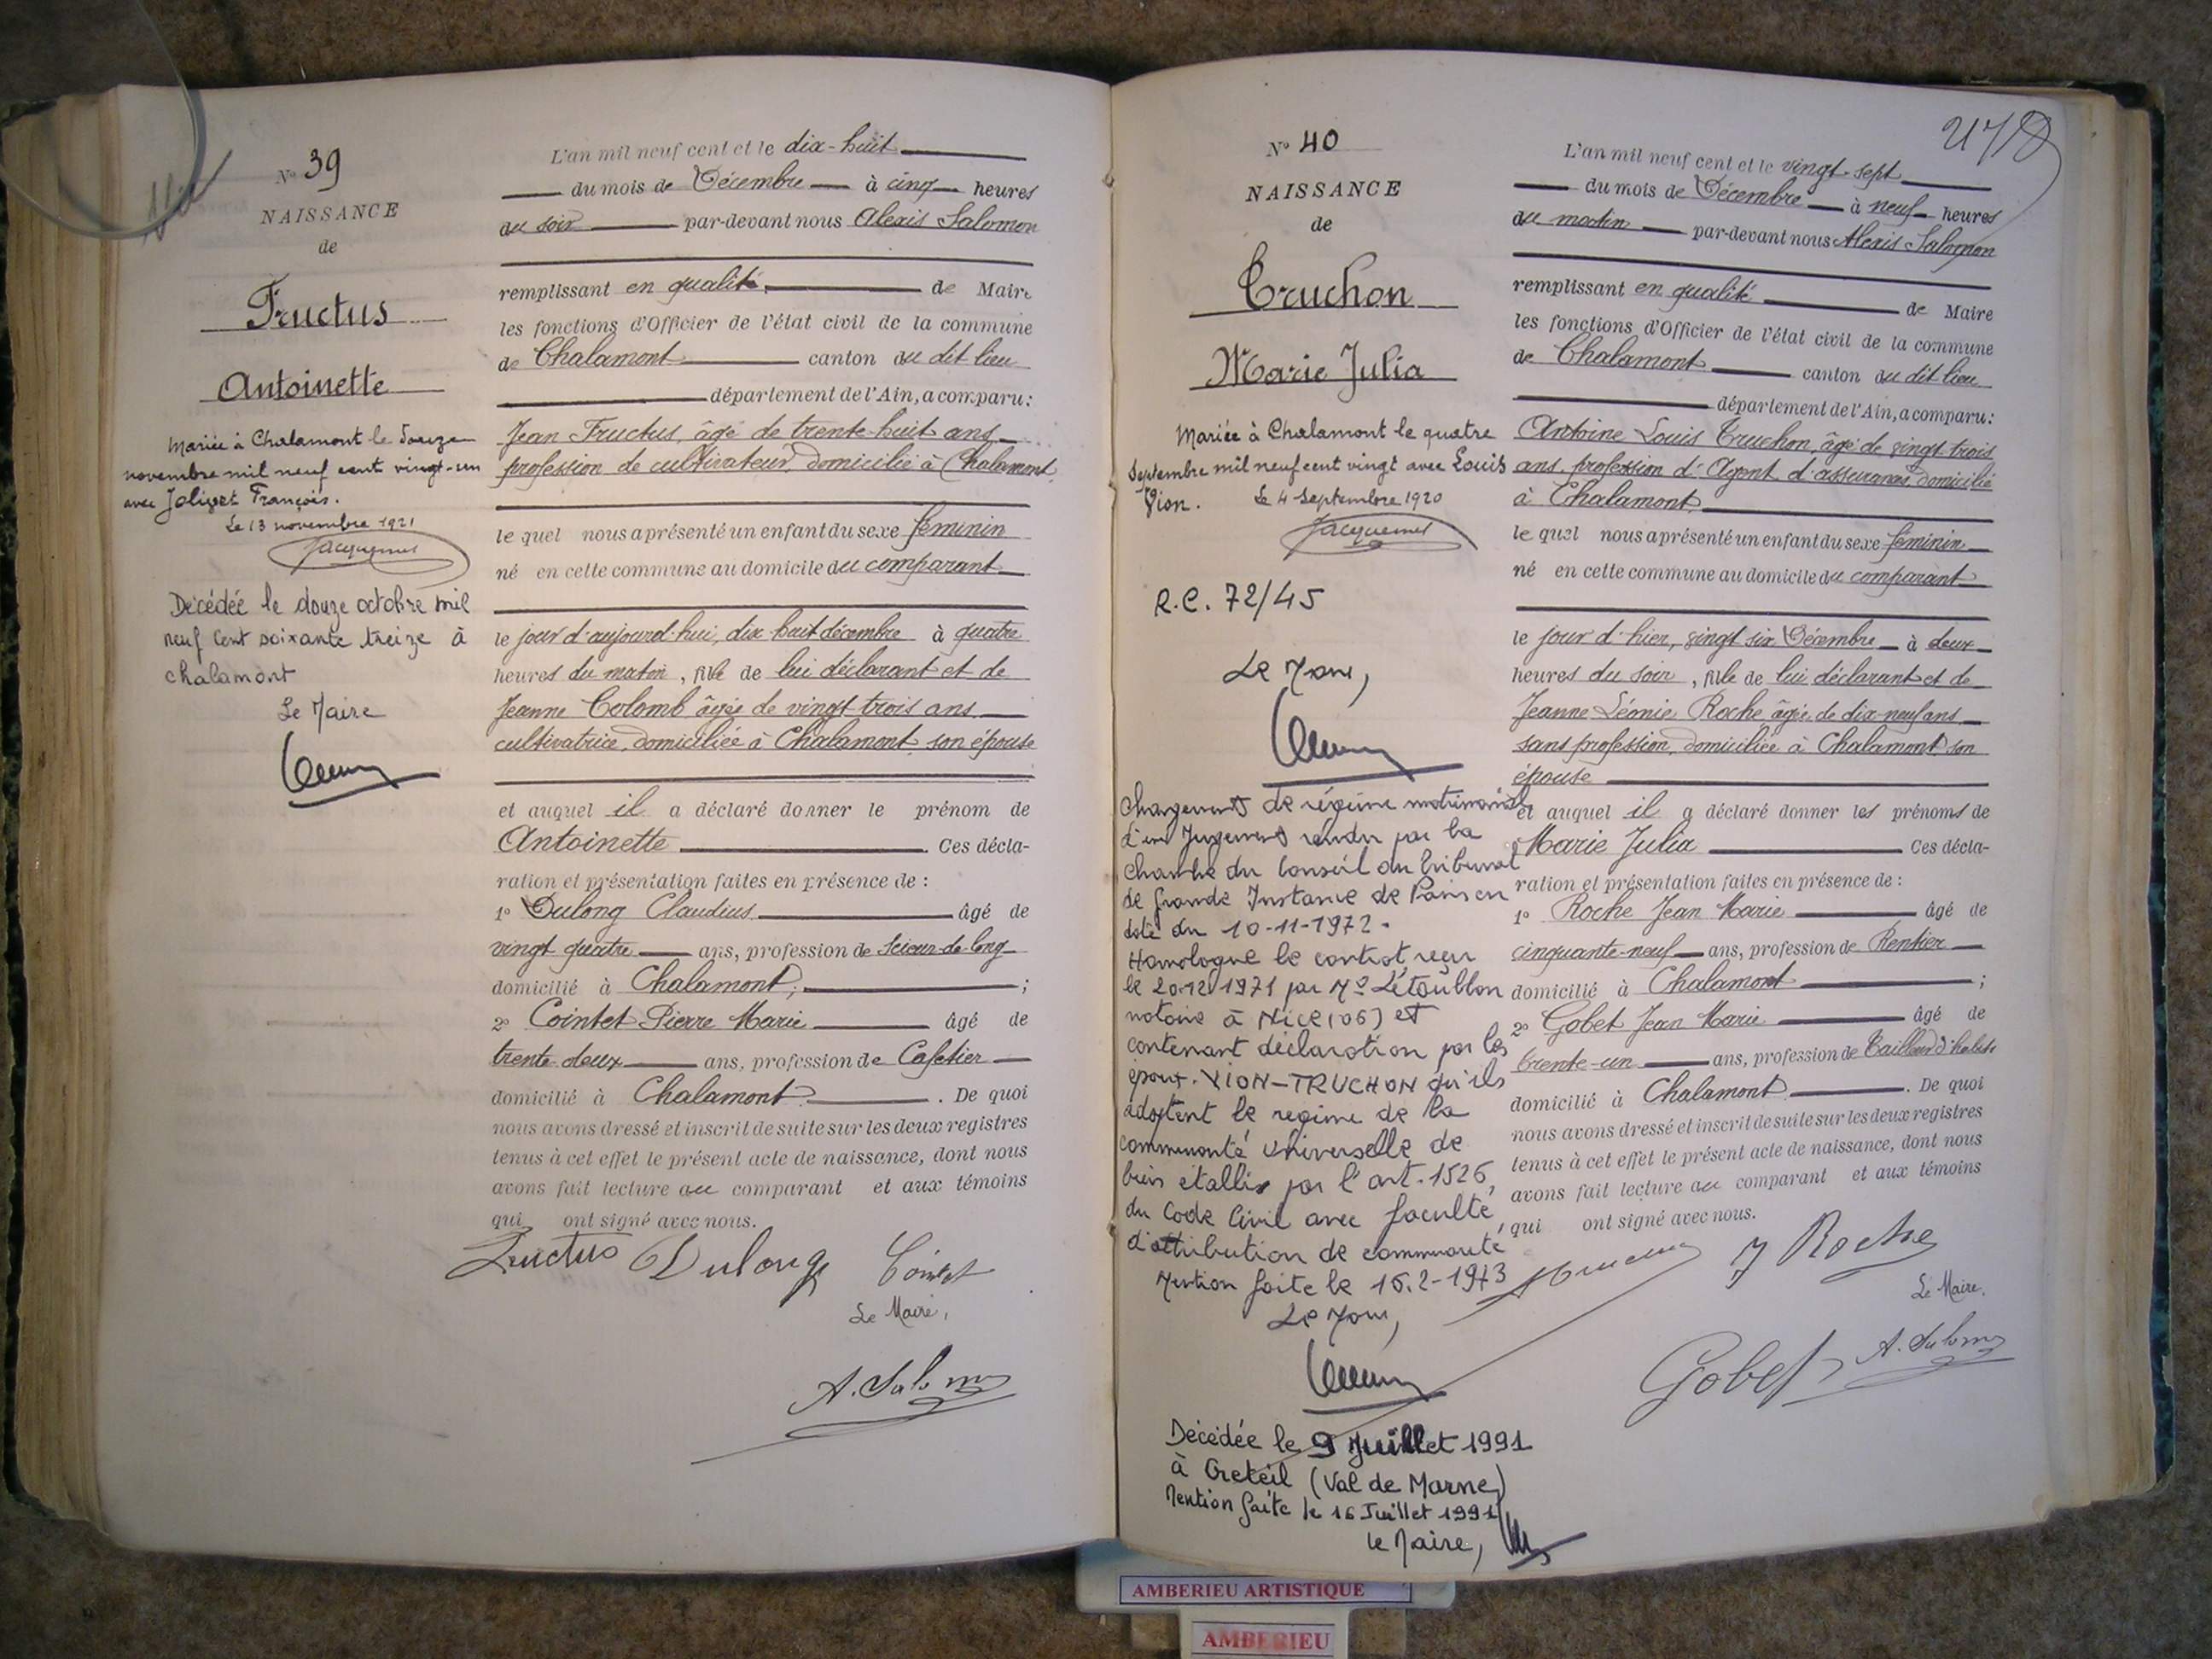 N° 39
NAISSANCE
de
Fructus
Antoinette
Mariée à Chalamont le douze
novembre mil neuf cent vingt-un
avec Jolivet François.
Le 13 novembre 1921
Jacquemet
Décédée le douze octobre mil
neuf cent soixante treize à
chalamont
Le Maire
L'an mil neuf cent et le dix-huit
du mois de Décembre à cinq heures
du soir par-devant nous Alexis Salomon
remplissant en qualité de Maire
les fonctions d'Officier de l'état civil de la commune
de Chalamont canton du dit lieu
département de l'Ain, a comparu:
Jean Fructus, âgé de trente-huit ans
profession de cultivateur, domicilié à Chalamont
le quel nous a présenté un enfant du sexe féminin
né en cette commune au domicile du comparant
le jour d'aujourd'hui, dix-huit décembre à quatre
heures du matin, fille de lui déclarant et de
Jeanne Colomb âgée de vingt trois ans
cultivatrice, domiciliée à Chalamont, son épouse
et auquel il a déclaré donner le prénom de
Antoinette. Ces décla-
ration et présentation faites en présence de :
1° Dulong Claudius âgé de
vingt quatre ans, profession de Scieur-de-long
domicilié à Chalamont, ;
2° Cointet Pierre Marie âgé de
trente-deux ans, profession de Cafetier
domicilié à Chalamont. De quoi
nous avons dressé et inscrit de suite sur les deux registres
tenus à cet effet le présent acte de naissance, dont nous
avons fait lecture au comparant et aux témoins
qui ont signé avec nous.
Fructus Dulong Cointet
Le Maire,
A. Salomon
N° 40
NAISSANCE
de
Truchon
Marie Julia
Mariée à Chalamont le quatre
Septembre mil neuf cent vingt avec Louis
Vion. Le 4 Septembre 1920
Jacquemet
R.C. 72/45
Le Maire,
Changement de régime matrimonial
d'un Jugement rendu par la
chambre du Conseil du tribunal
de Grande Instance de Paris en
date du 10-11-1972.
Homologue le contrat reçu
le 20-12-1971 par Me Létoublon
notaire à Nice (06) et
contenant déclaration par les
époux VION-TRUCHON qu'ils
adoptent le regime de la
communauté universelle de
biens établis par l'art. 1526
du Code Civil avec faculté
d'attribution de communauté
Mention faite le 16.2-1973
Le Maire,
Décédée le 9 Juillet 1991
à Creteil (Val de Marne)
Mention faite le 16 Juillet 1991
le Maire,
L'an mil neuf cent et le vingt-sept
du mois de Décembre à neuf heures
du matin par-devant nous Alexis Salomon
remplissant en qualité de Maire
les fonctions d'Officier de l'état civil de la commune
de Chalamont canton du dit lieu
département de l'Ain, a comparu:
Antoine Louis Truchon, âgé de vingt trois
ans, profession d'Agent d'assurances, domicilié
à Chalamont
le quel nous a présenté un enfant du sexe féminin
né en cette commune au domicile du comparant
le jour d'hier, vingt six Décembre à deux
heures du soir, fille de lui déclarant et de
Jeanne Léonie Roche âgée de dix-neuf ans
sans profession, domiciliée à Chalamont, son
épouse
et auquel il a déclaré donner les prénoms de
Marie Julia Ces décla-
ration et présentation faites en présence de :
1° Roche Jean Marie âgé de
cinquante-neuf ans, profession de Rentier
domicilié à Chalamont ;
2° Gobet Jean Marie âgé de
trente-un ans, profession de Tailleur d'habits
domicilié à Chalamont. De quoi
nous avons dressé et inscrit de suite sur les deux registres
tenus à cet effet le présent acte de naissance, dont nous
avons fait lecture au comparant et aux témoins
qui ont signé avec nous.
J Roche
Le Maire,
Gobet A. Salomon
AMBERIEU ARTISTIQUE
AMBERIEU